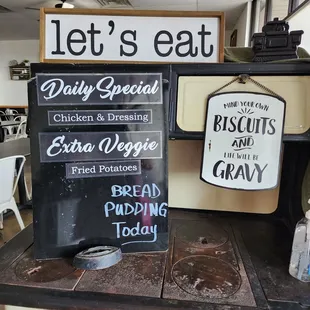 let's eat
Daily Special
Chicken & Dressing
Extra Veggie
Fried Potatoes
BREAD
PUDDING
Today
MIND YOUR OWN
BISCUITS
AND
LIFE WILL BE
GRAVY